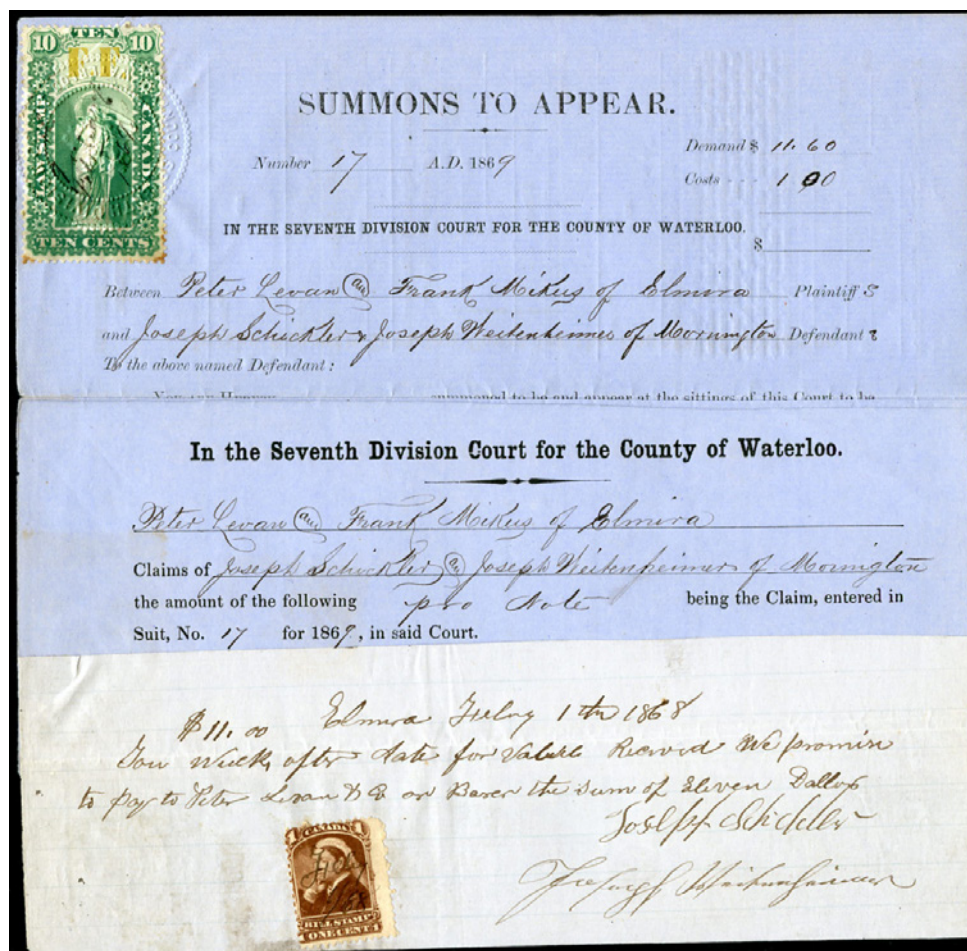 10 TEN 10
F F
LAW STAMP
CANADA
TEN CENTS
SUMMONS TO APPEAR.
Number 17 A.D. 1869
Demand $ 11.60
Costs 1 00
IN THE SEVENTH DIVISION COURT FOR THE COUNTY OF WATERLOO.
$
Between Peter Levan and Frank Mikus of Elmira Plaintiff s
and Joseph Schickler & Joseph Weitenheimer of Mornington Defendant s
To the above named Defendant :
You are Hereby summoned to be and appear at the sittings of this Court to be
In the Seventh Division Court for the County of Waterloo.
Peter Levan and Frank Mikus of Elmira
Claims of Joseph Schickler and Joseph Weitenheimer of Mornington
the amount of the following pro Note being the Claim, entered in
Suit, No. 17 for 1869, in said Court.
$11.00 Elmira 1 1868
after date for Value Received We promise
to pay to Peter Levan & or Barer the sum of Eleven Dollars
Joseph Schickler
Joseph Weitenheimer
1 CANADA 1
BILL STAMP
1 ONE CENT 1